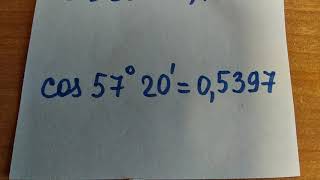 cos 57° 20' = 0,5397